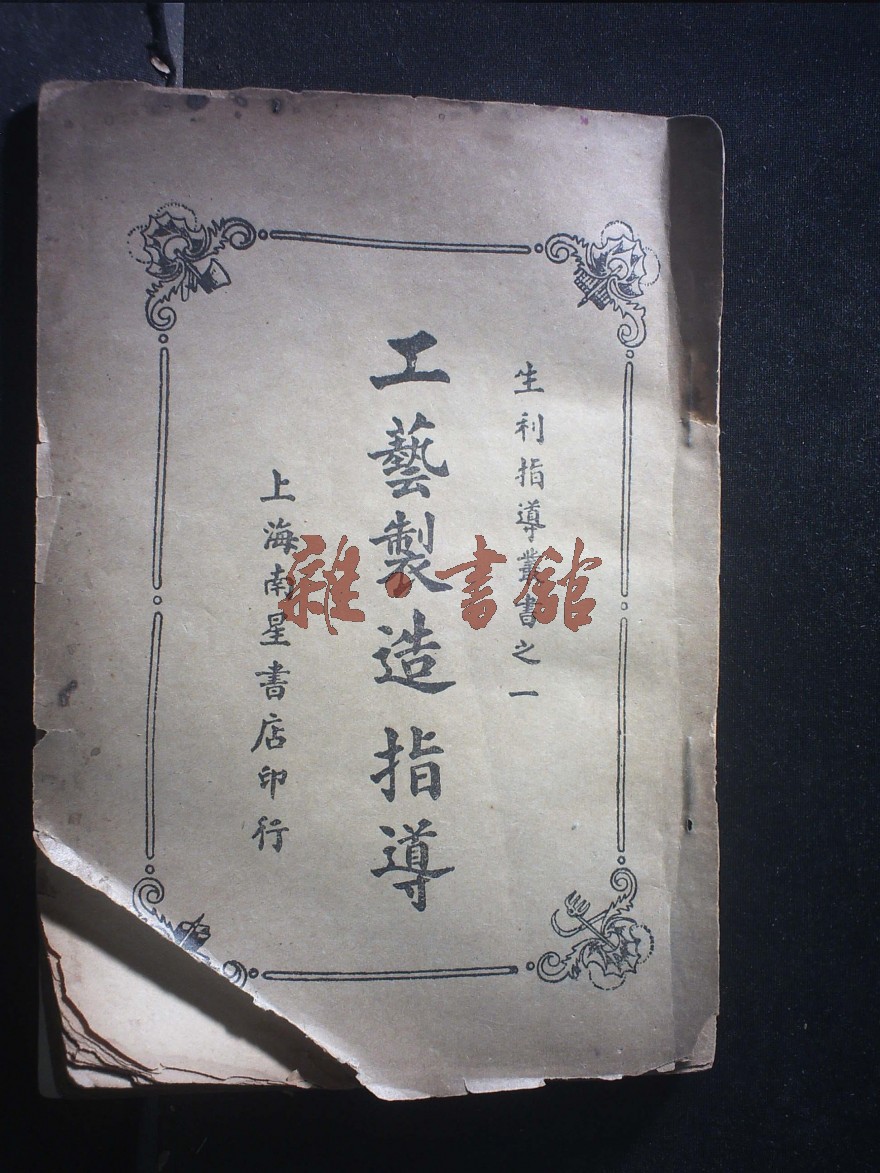 生利指導叢書之一
工藝製造指導
上海南星書店印行
雜·書館